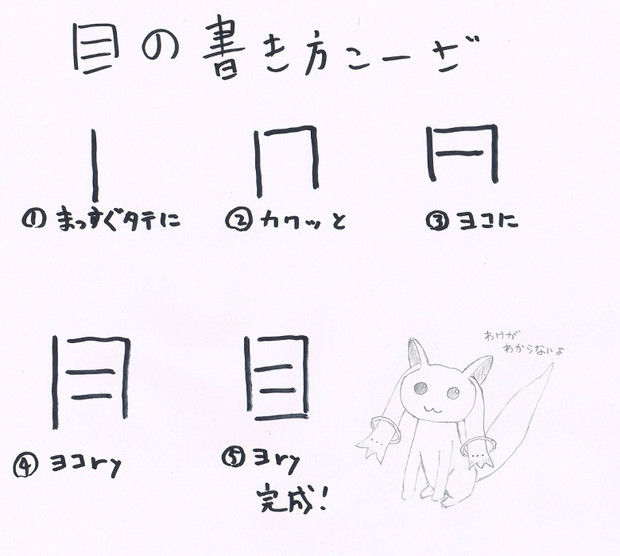 目の書き方こーざ
①まっすぐタテに
②カクッと
③ヨコに
わけが
わからないよ
④ヨコry
⑤ヨry
完成！